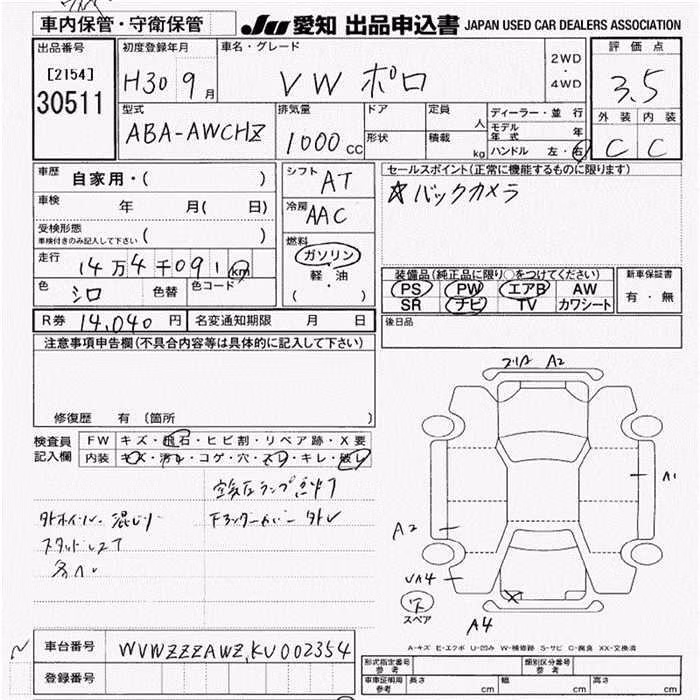 車内保管・守衛保管 JU 愛知 出品申込書 JAPAN USED CAR DEALERS ASSOCIATION
出品番号 初度登録年月 車名・グレード 2WD・4WD 評価点
[2154] H30 9月 VW ポロ 3.5
30511 型式 排気量 ドア 定員 人 ディーラー・並行 外装 内装
ABA-AWCHZ 1000cc 形状 積載 kg モデル年式 年 C C
ハンドル 左・右
車歴 自家用・( ) シフト AT セールスポイント(正常に機能するものに限ります)
車検 年 月( 日) 冷房 AAC ☆バックカメラ
受検形態 車検付きのみ記入して下さい ( ) 燃料 ガソリン
走行 14万4千091km 軽・油 装備品(純正品に限り○をつけてください) 新車保証書
色 シロ 色替 色コード ( ) PS PW エアB AW 有・無
SR ナビ TV カワシート
R券 14,040円 名変通知期限 月 日 後日品
注意事項申告欄(不具合内容等は具体的に記入して下さい)
修復歴 有(箇所 )
検査員記入欄 FW キズ・飛石・ヒビ割・リペア跡・X要
内装 キズ・汚れ・コゲ・穴・スレ・キレ・破レ
空気圧ランプ点灯
外ホイール混じり 下
スタッドレス
A2
A1
A2
A4
スペア
A-キズ E-エクボ U-凹み W-補修跡 S-サビ C-腐食 XX-交換済
車台番号 WVWZZZAWZ,KU002354
登録番号
形式指定番号 参考 類別区分番号 参考
車車証明用 参考 長さ cm 幅 cm 高さ cm